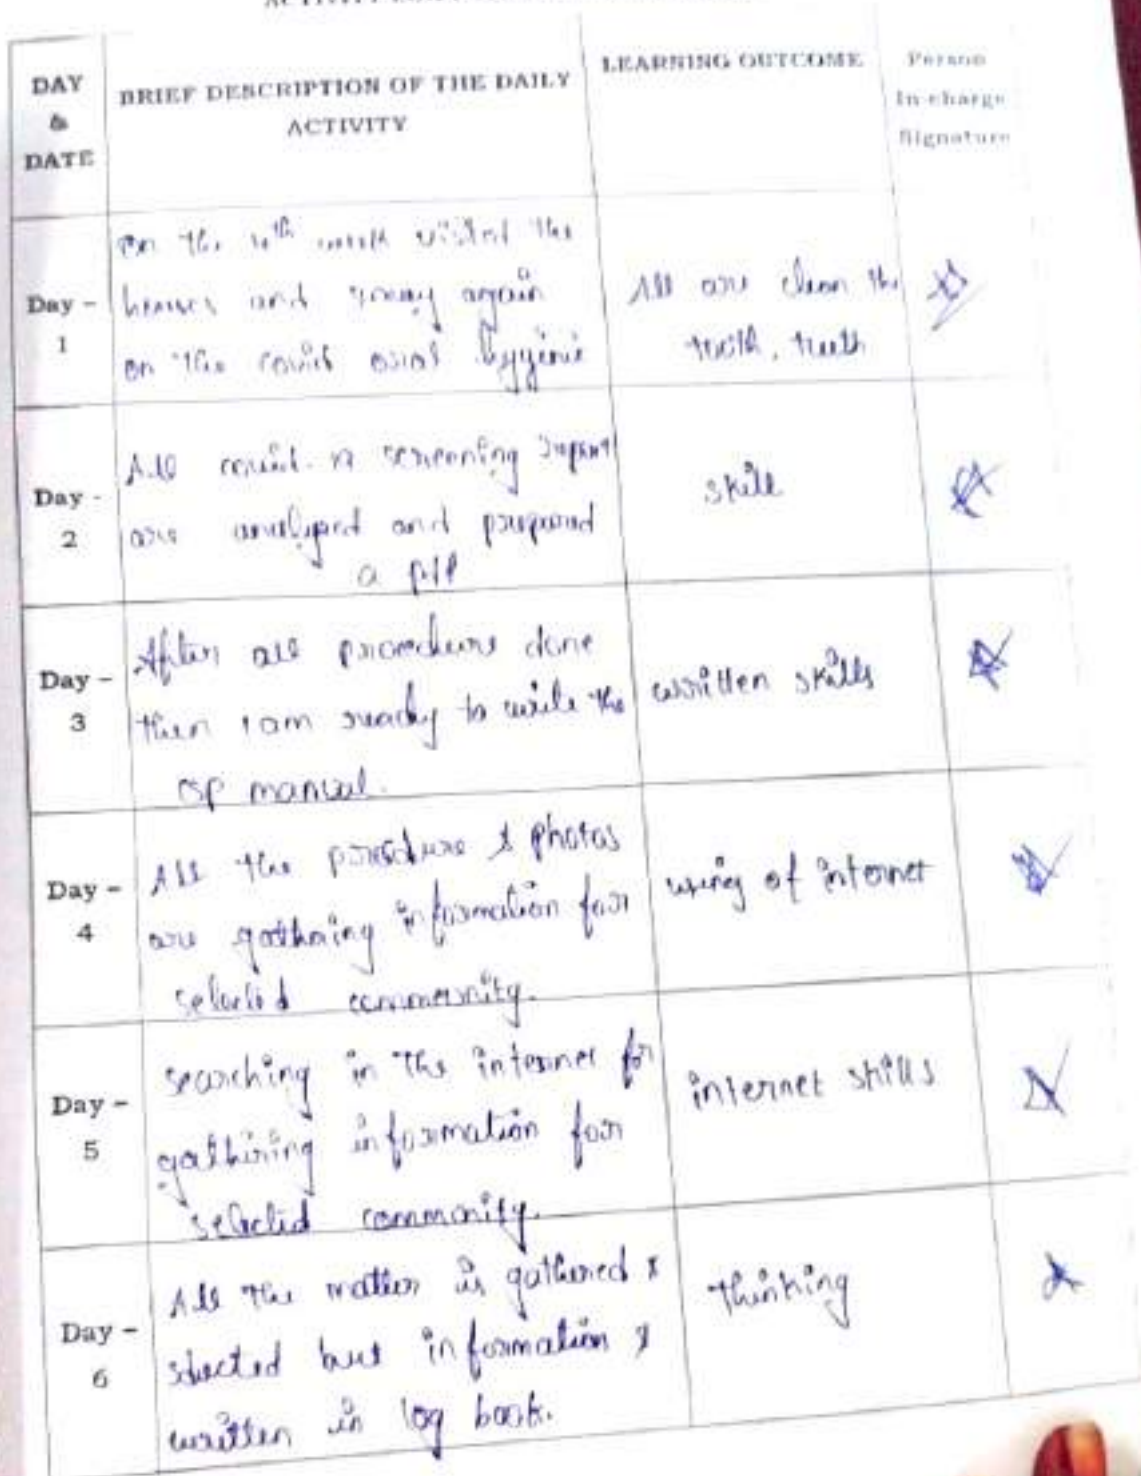 DAY
&
DATE
BRIEF DESCRIPTION OF THE DAILY
ACTIVITY
LEARNING OUTCOME
Person
In-charge
Signature
Day -
1
on the 4th week visited the
houses and again
on the oral hyginie
All are clean the
tooth, teeth
Day -
2
All screening
are analyzed and prepared
a
skill
Day -
3
After all procedure done
then I am ready to write the
csp manual.
written skills
Day -
4
All the procedure & photos
are gathring information for
selected community.
using of internet
Day -
5
searching in the internet for
gathiring information for
selected community.
internet skills
Day -
6
All the matter is gathered &
information &
written in log book.
thinking